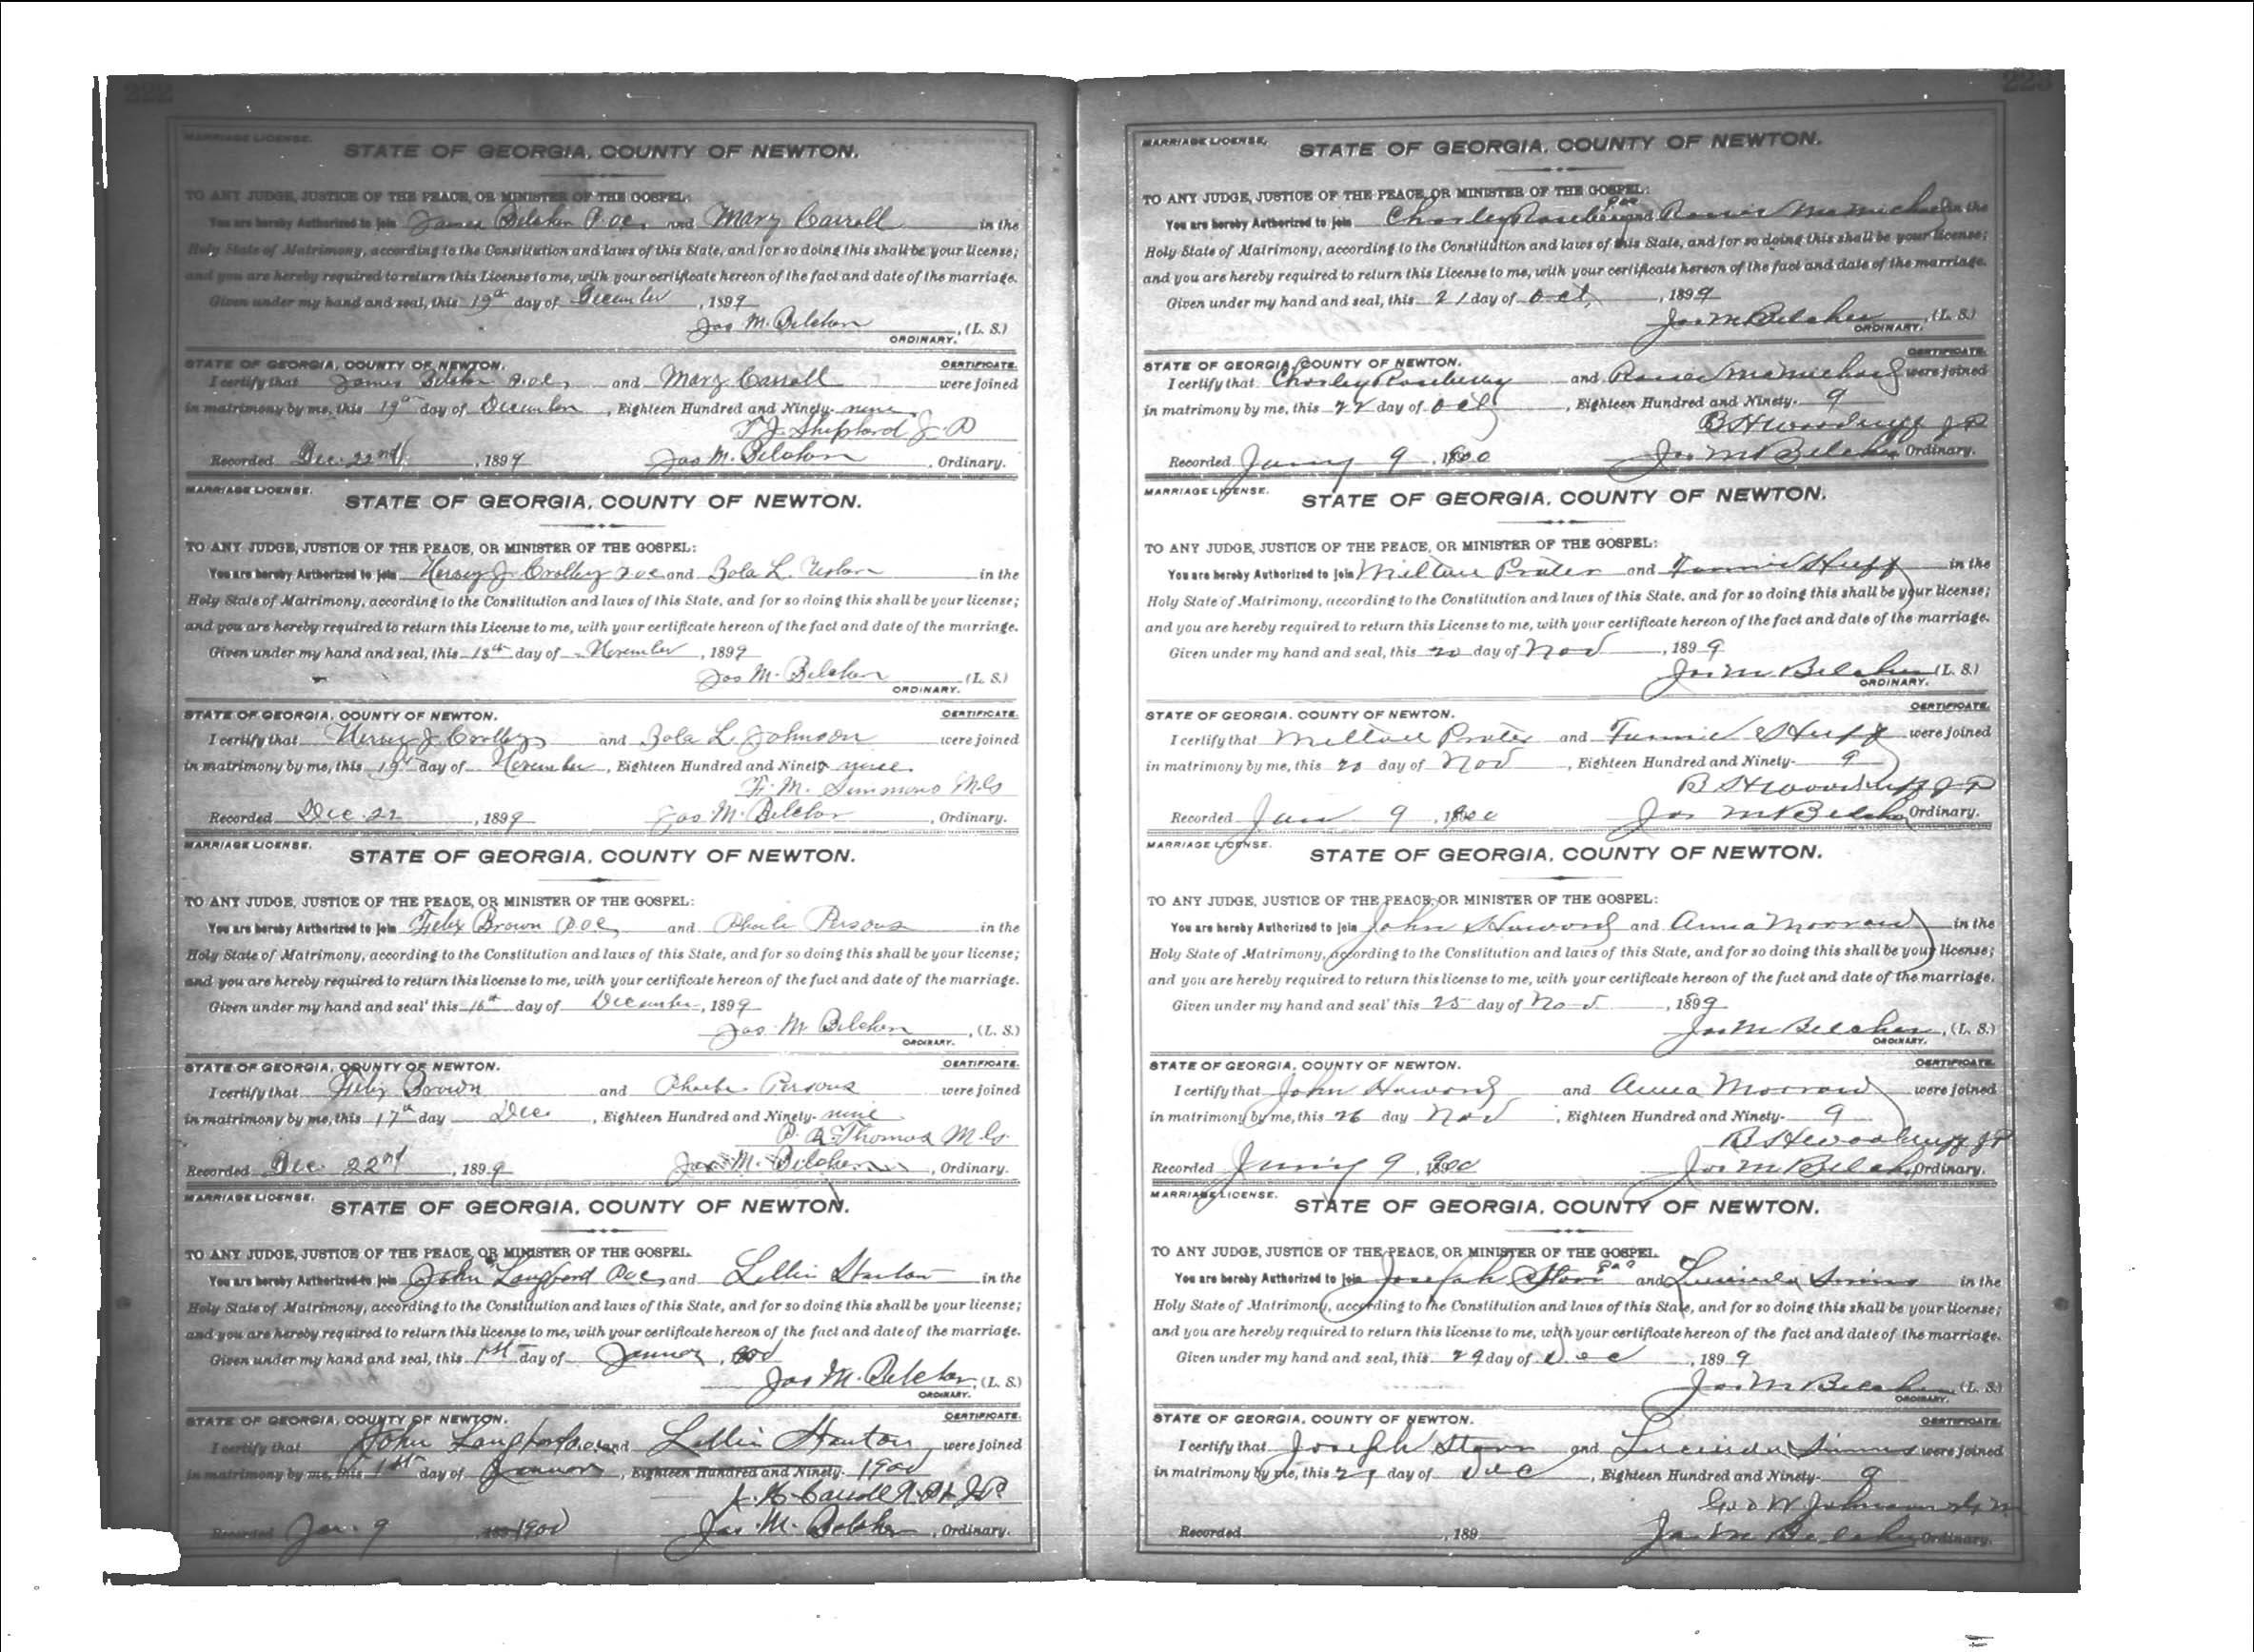 222
MARRIAGE LICENSE.
STATE OF GEORGIA, COUNTY OF NEWTON.
TO ANY JUDGE, JUSTICE OF THE PEACE, OR MINISTER OF THE GOSPEL:
You are hereby Authorized to join James Belcher and Mary Carroll in the
Holy State of Matrimony, according to the Constitution and laws of this State, and for so doing this shall be your license;
and you are hereby required to return this License to me, with your certificate hereon of the fact and date of the marriage.
Given under my hand and seal, this 19th day of December, 1899
Jas M. Belcher, (L. S.)
ORDINARY.
STATE OF GEORGIA, COUNTY OF NEWTON. CERTIFICATE.
I certify that James Belcher and Mary Carroll were joined
in matrimony by me, this 19th day of December, Eighteen Hundred and Ninety-nine
T. J. Shephard J. P
Recorded Dec. 22nd, 1899 Jas M. Belcher, Ordinary.
MARRIAGE LICENSE.
STATE OF GEORGIA, COUNTY OF NEWTON.
TO ANY JUDGE, JUSTICE OF THE PEACE, OR MINISTER OF THE GOSPEL:
You are hereby Authorized to join J. and L. in the
Holy State of Matrimony, according to the Constitution and laws of this State, and for so doing this shall be your license;
and you are hereby required to return this License to me, with your certificate hereon of the fact and date of the marriage.
Given under my hand and seal, this 18th day of November, 1899
Jas M. Belcher (L. S.)
ORDINARY.
STATE OF GEORGIA, COUNTY OF NEWTON. CERTIFICATE.
I certify that J. and L. Johnson were joined
in matrimony by me, this 19th day of November, Eighteen Hundred and Ninety nine.
M. Simmons M.G
Recorded Dec. 22, 1899 Jas M. Belcher, Ordinary.
MARRIAGE LICENSE.
STATE OF GEORGIA, COUNTY OF NEWTON.
TO ANY JUDGE, JUSTICE OF THE PEACE, OR MINISTER OF THE GOSPEL:
You are hereby Authorized to join Felix Brown and Phoebe Persons in the
Holy State of Matrimony, according to the Constitution and laws of this State, and for so doing this shall be your license;
and you are hereby required to return this license to me, with your certificate hereon of the fact and date of the marriage.
Given under my hand and seal' this 16th day of December, 1899
Jas M Belcher, (L. S.)
ORDINARY.
STATE OF GEORGIA, COUNTY OF NEWTON. CERTIFICATE.
I certify that Felix Brown and Phoebe Persons were joined
in matrimony by me, this 17th day Dec, Eighteen Hundred and Ninety-nine
Thomas M.G.
Recorded Dec. 22nd, 1899 Jas M. Belcher, Ordinary.
MARRIAGE LICENSE.
STATE OF GEORGIA, COUNTY OF NEWTON.
TO ANY JUDGE, JUSTICE OF THE PEACE, OR MINISTER OF THE GOSPEL.
You are hereby Authorized to join John Langford and Lillie Stanton in the
Holy State of Matrimony, according to the Constitution and laws of this State, and for so doing this shall be your license;
and you are hereby required to return this license to me, with your certificate hereon of the fact and date of the marriage.
Given under my hand and seal, this 1st day of
Jas M. Belcher, (L. S.)
ORDINARY.
STATE OF GEORGIA, COUNTY OF NEWTON. CERTIFICATE.
I certify that John Langford and Lillie Stanton, were joined
in matrimony by me, this 1st day of, Eighteen Hundred and Ninety- 1900
Carroll J.P.
Recorded Jan. 9, 1900 Jas. M. Belcher, Ordinary.
223
MARRIAGE LICENSE,
STATE OF GEORGIA, COUNTY OF NEWTON.
TO ANY JUDGE, JUSTICE OF THE PEACE, OR MINISTER OF THE GOSPEL:
You are hereby Authorized to join Charley Roseberry and McMichael in the
Holy State of Matrimony, according to the Constitution and laws of this State, and for so doing this shall be your license;
and you are hereby required to return this License to me, with your certificate hereon of the fact and date of the marriage.
Given under my hand and seal, this 21 day of Oct, 1899
Jas M Belcher, (L. S.)
ORDINARY.
STATE OF GEORGIA, COUNTY OF NEWTON. CERTIFICATE.
I certify that Charley Roseberry and McMichael were joined
in matrimony by me, this 22 day of Oct, Eighteen Hundred and Ninety- 9
B H Woodruff JP
Recorded 9, 1900 Jas M Belcher Ordinary.
MARRIAGE LICENSE.
STATE OF GEORGIA, COUNTY OF NEWTON.
TO ANY JUDGE, JUSTICE OF THE PEACE, OR MINISTER OF THE GOSPEL:
You are hereby Authorized to join Milton Prater and Fannie Huff in the
Holy State of Matrimony, according to the Constitution and laws of this State, and for so doing this shall be your license;
and you are hereby required to return this License to me, with your certificate hereon of the fact and date of the marriage.
Given under my hand and seal, this 20 day of Nov, 1899
Jas M Belcher (L. S.)
ORDINARY.
STATE OF GEORGIA, COUNTY OF NEWTON. CERTIFICATE.
I certify that Milton Prater and Fannie Huff were joined
in matrimony by me, this 20 day of Nov, Eighteen Hundred and Ninety- 9
B H Woodruff JP
Recorded Jan 9, 1900 Jas M Belcher Ordinary.
MARRIAGE LICENSE.
STATE OF GEORGIA, COUNTY OF NEWTON.
TO ANY JUDGE, JUSTICE OF THE PEACE, OR MINISTER OF THE GOSPEL:
You are hereby Authorized to join John and Anna Morrow in the
Holy State of Matrimony, according to the Constitution and laws of this State, and for so doing this shall be your license;
and you are hereby required to return this license to me, with your certificate hereon of the fact and date of the marriage.
Given under my hand and seal' this 25 day of Nov, 1899
Jas M Belcher, (L. S.)
ORDINARY.
STATE OF GEORGIA, COUNTY OF NEWTON. CERTIFICATE.
I certify that John and Anna Morrow were joined
in matrimony by me, this 26 day Nov, Eighteen Hundred and Ninety- 9
B H Woodruff JP
Recorded 9, 1900 Jas M Belcher, Ordinary.
MARRIAGE LICENSE.
STATE OF GEORGIA, COUNTY OF NEWTON.
TO ANY JUDGE, JUSTICE OF THE PEACE, OR MINISTER OF THE GOSPEL.
You are hereby Authorized to join Joseph and Lucinda Simms in the
Holy State of Matrimony, according to the Constitution and laws of this State, and for so doing this shall be your license;
and you are hereby required to return this license to me, with your certificate hereon of the fact and date of the marriage.
Given under my hand and seal, this 29 day of Dec, 1899
Jas M Belcher, (L. S.)
ORDINARY.
STATE OF GEORGIA, COUNTY OF NEWTON. CERTIFICATE.
I certify that Joseph and Lucinda Simms were joined
in matrimony by me, this 29 day of Dec, Eighteen Hundred and Ninety- 9
Geo W Johnson
Recorded, 189 Jas M Belcher Ordinary.